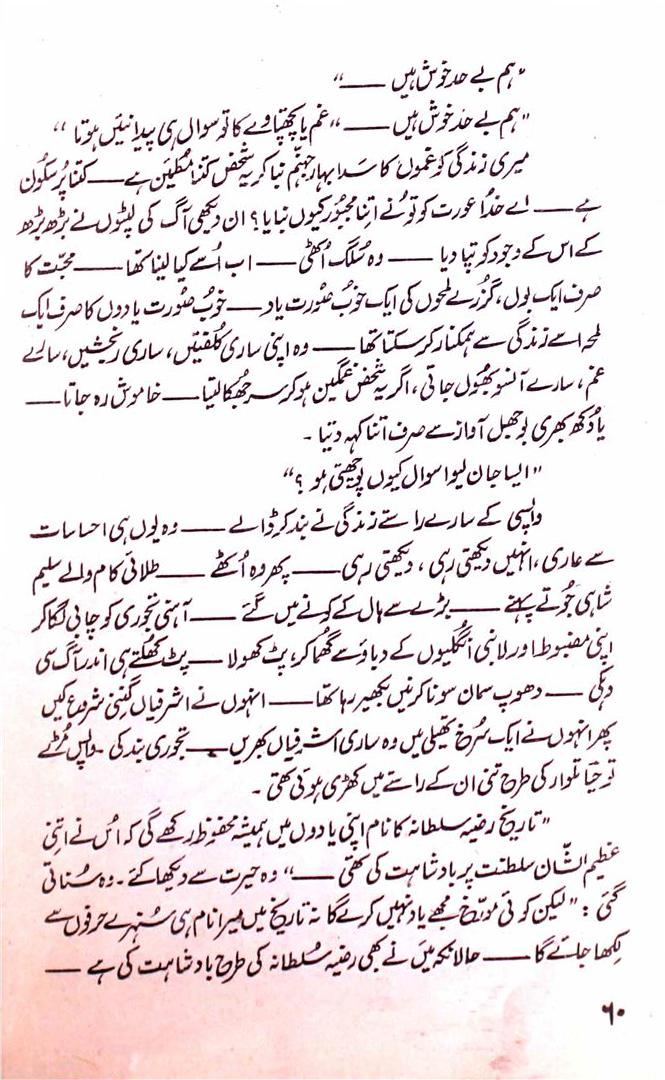 "ہم بے حد خوش ہیں ——"
"ہم بے حد خوش ہیں —— "غم یا پچھتاوے کا تو سوال ہی پیدا نہیں ہوتا"
میری زندگی کو غموں کا سدا بہار جہنم بنا کر یہ شخص کتنا مطمئن ہے —— کتنا پُر سکون
ہے —— اے خدا عورت کو تو نے اتنا مجبور کیوں بنایا؟ ان دیکھی آگ کی لپٹوں نے بڑھ بڑھ
کے اس کے وجود کو تپا دیا —— وہ سُلگ اُٹھی —— اب اُسے کیا لینا تھا —— محبت کا
صرف ایک بول، گزرے لمحوں کی ایک خوبصورت یاد —— خوبصورت یادوں کا صرف ایک
لمحہ اسے زندگی سے ہمکنار کر سکتا تھا —— وہ اپنی ساری کلفتیں، ساری رنجشیں، سارے
غم، سارے آنسو بھول جاتی، اگر یہ شخص غمگین ہو کر سر جھکا لیتا —— خاموش رہ جاتا ——
یا دُکھ بھری بوجھل آواز سے صرف اتنا کہہ دیتا ۔
"ایسا جان لیوا سوال کیوں پوچھتی ہو ؟"
واپسی کے سارے راستے زندگی نے بند کر ڈالے —— وہ یوں ہی احساسات
سے عاری، انہیں دیکھتی رہی، دیکھتی رہی —— پھر وہ اُٹھے —— طلائی کام والے سلیم
شاہی جُوتے پہنے —— بڑے سے ہال کے کونے میں گئے —— آہنی تجوری کو چابی لگا کر
اپنی مضبوط اور لانبی انگلیوں کے دباؤ سے گھما کر، پٹ کھولا —— پٹ کھُلتے ہی اندر آگ سی
دہکی —— دھوپ سمان سونا کرنیں بکھیر رہا تھا —— انہوں نے اشرفیاں گننی شروع کیں
پھر انہوں نے ایک سُرخ تھیلی میں وہ ساری اشرفیاں بھریں —— تجوری بند کی ۔ واپس مُڑے
تو حیا تلوار کی طرح تنی ان کے راستے میں کھڑی ہوئی تھی ۔
"تاریخ رضیہ سلطانہ کا نام اپنی یادوں میں ہمیشہ محفوظ رکھے گی کہ اُس نے اتنی
عظیم الشّان سلطنت پر بادشاہت کی تھی ——" وہ حیرت سے دیکھا کئے ۔ وہ سُناتی
گئی : "لیکن کوئی مورّخ مجھے یاد نہیں کرے گا نہ تاریخ میں میرا نام ہی سُنہرے حرفوں سے
لکھا جائے گا —— حالانکہ میں نے بھی رضیہ سُلطانہ کی طرح بادشاہت کی ہے ——
۶۰